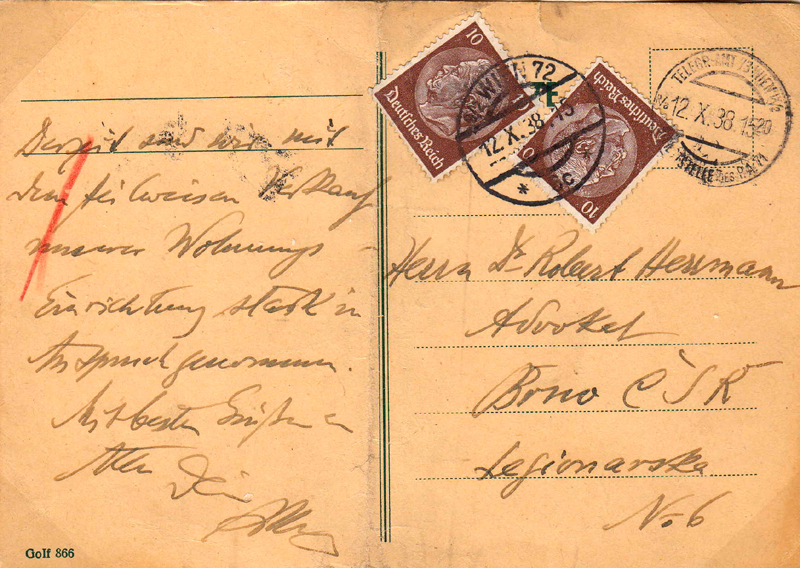 Derzeit sind wir mit
dem teilweisen Verkauf
unserer Wohnungs-
Einrichtung stark in
Anspruch genommen.
Mit besten Grüßen an
Alle Dein
Golf 866
10
Deutsches Reich
WIEN 72
12.X.38.15
10
Deutsches Reich
12.X.38.1520
Herrn Dr Robert Herrmann
Advokat
Brno ČSR
Legionarska
No. 6